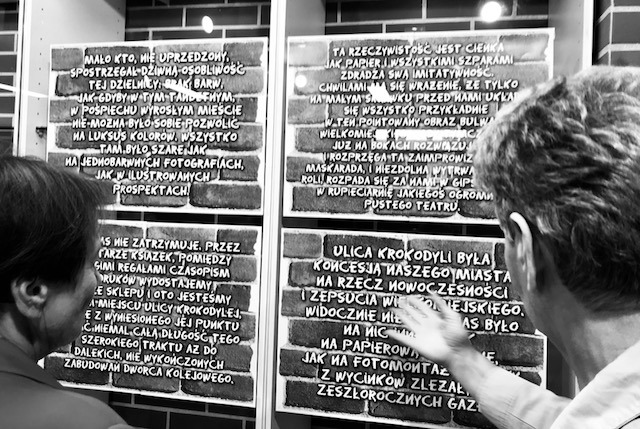 MAŁO KTO, NIE UPRZEDZONY,
SPOSTRZEGAŁ DZIWNĄ OSOBLIWOŚĆ
TEJ DZIELNICY: BRAK BARW,
JAK GDYBY W TYM TANDETNYM,
W POŚPIECHU WYROSŁYM MIEŚCIE
NIE MOŻNA BYŁO SOBIE POZWOLIĆ
NA LUKSUS KOLORÓW. WSZYSTKO
TAM BYŁO SZARE JAK
NA JEDNOBARWNYCH FOTOGRAFIACH,
JAK W ILUSTROWANYCH
PROSPEKTACH.
TA RZECZYWISTOŚĆ JEST CIENKA
JAK PAPIER I WSZYSTKIMI SZPARAMI
ZDRADZA SWĄ IMITATYWNOŚĆ.
CHWILAMI SIĘ WRAŻENIE, ŻE TYLKO
NA MAŁYM SKRAWKU PRZED NAMI UKŁA
SIĘ WSZYSTKO PRZYKŁADNIE
W TEN POINTOWANY OBRAZ BULWA
WIELKOMIEJ
JUŻ NA BOKACH ROZWIĄZUJ
I ROZPRZĘGA TA ZAIMPROWIZ
MASKARADA, I NIEZDOLNA WYTRWA
ROLI, ROZPADA SIĘ ZA NAMI W GIPS
W RUPIECIARNIĘ JAKIEGOŚ OGROM
PUSTEGO TEATRU.
AS NIE ZATRZYMUJE. PRZEZ
TARZE KSIĄŻEK, POMIĘDZY
GIMI REGAŁAMI CZASOPISM
DRUKÓW WYDOSTAJEMY
ZE SKLEPU I OTO JESTEŚMY
MIEJSCU ULICY KROKODYLEJ,
E Z WYNIESIONEGO JEJ PUNKTU
Ć NIEMAL CAŁĄ DŁUGOŚĆ TEGO
SZEROKIEGO TRAKTU AŻ DO
DALEKICH, NIE WYKOŃCZONYCH
ZABUDOWAŃ DWORCA KOLEJOWEGO.
ULICA KROKODYLI BYŁA
KONCESJĄ NASZEGO MIASTA
NA RZECZ NOWOCZESNOŚCI
I ZEPSUCIA WIELKOMIEJSKIEGO.
WIDOCZNIE NIE AS BYŁO
NA NIC
NA PAPIEROW
JAK NA FOTOMONTAŻ
Z WYCINKÓW ZLEŻAŁ
ZESZŁOROCZNYCH GAZ